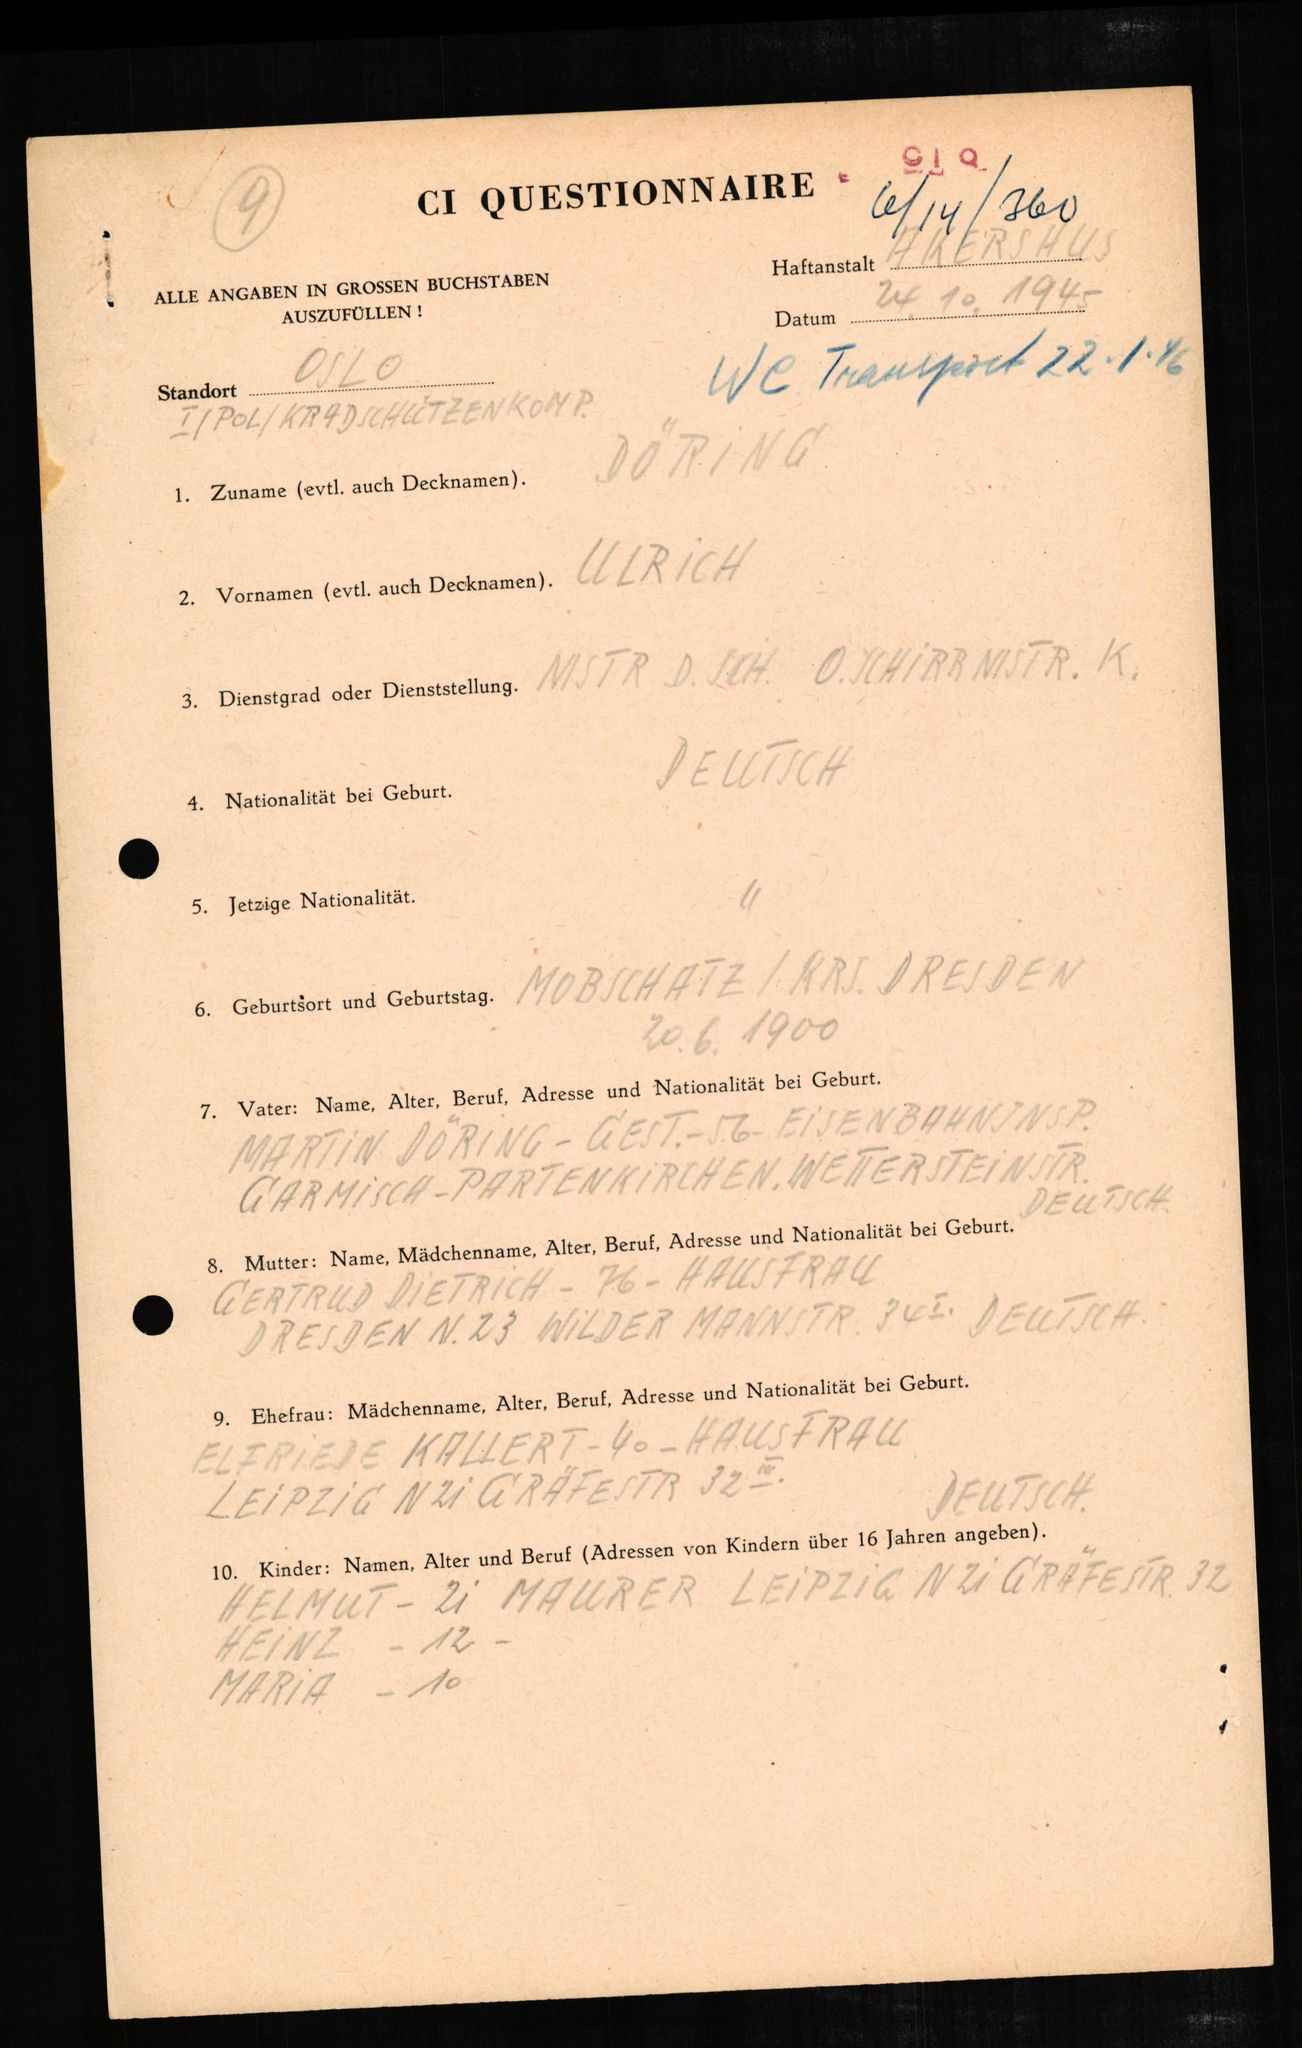 9
CI QUESTIONNAIRE
C I Q
6/14/360
ALLE ANGABEN IN GROSSEN BUCHSTABEN
AUSZUFÜLLEN!
Haftanstalt AKERSHUS
Datum 24.10.1945
Standort OSLO
WC Transport 22.1.46
I/POL/KRADSCHÜTZENKOMP.
1. Zuname (evtl. auch Decknamen). DÖRING
2. Vornamen (evtl. auch Decknamen). ULRICH
3. Dienstgrad oder Dienststellung. MSTR D. SCH. O.SCHIRRMSTR. K.
4. Nationalität bei Geburt. DEUTSCH
5. Jetzige Nationalität. "
6. Geburtsort und Geburtstag. MOBSCHATZ / KRS. DRESDEN
20.6.1900
7. Vater: Name, Alter, Beruf, Adresse und Nationalität bei Geburt.
MARTIN DÖRING - GEST.-56- EISENBAHNINSP.
GARMISCH-PARTENKIRCHEN. WETTERSTEINSTR.
DEUTSCH.
8. Mutter: Name, Mädchenname, Alter, Beruf, Adresse und Nationalität bei Geburt.
GERTRUD DIETRICH - 76 - HAUSFRAU
DRESDEN N. 23 WILDER MANNSTR. 34 I. DEUTSCH.
9. Ehefrau: Mädchenname, Alter, Beruf, Adresse und Nationalität bei Geburt.
ELFRIEDE KALLERT - 40 - HAUSFRAU
LEIPZIG N 21 GRÄFESTR 32 III.
DEUTSCH.
10. Kinder: Namen, Alter und Beruf (Adressen von Kindern über 16 Jahren angeben).
HELMUT - 21 MAURER LEIPZIG N 21 GRÄFESTR. 32
HEINZ - 12 -
MARIA - 10